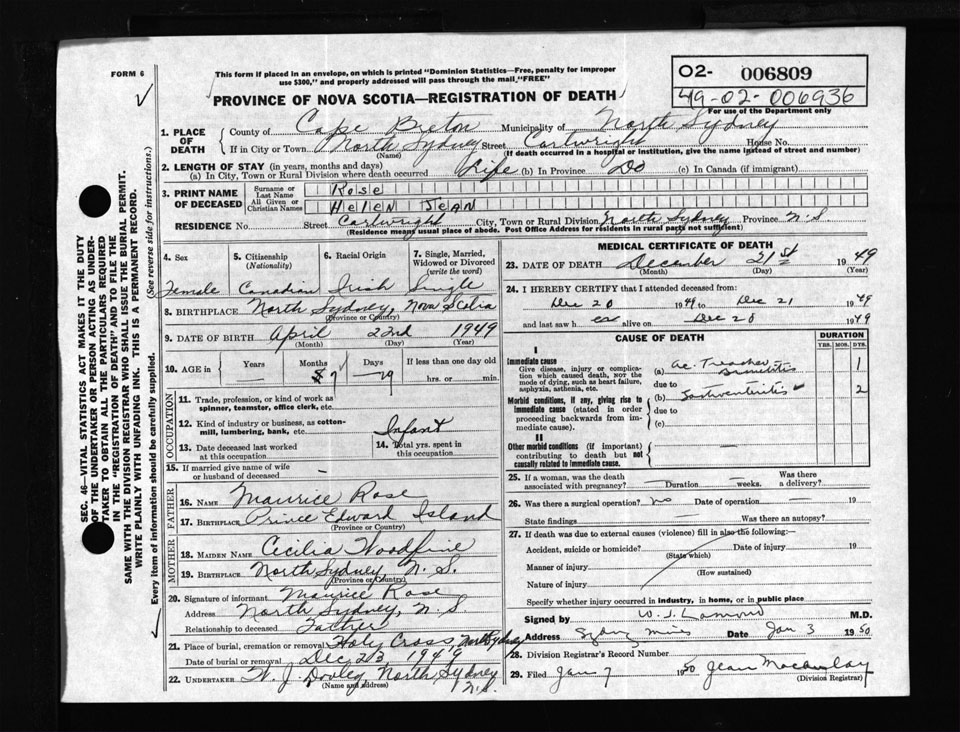 FORM 6
This form if placed in an envelope, on which is printed "Dominion Statistics—Free, penalty for improper
use $300," and properly addressed will pass through the mail, "FREE"
O2- 006809
49-02-006936
For use of the Department only
PROVINCE OF NOVA SCOTIA—REGISTRATION OF DEATH
1. PLACE OF DEATH County of Cape Breton Municipality of North Sydney
If in City or Town North Sydney Street Cartwright House No.
(Name) (If death occurred in a hospital or institution, give the name instead of street and number)
2. LENGTH OF STAY (in years, months and days)
(a) In City, Town or Rural Division where death occurred Life (b) In Province Do (c) In Canada (if immigrant)
3. PRINT NAME OF DECEASED
Surname or Last Name Rose
All Given or Christian Names HELEN JEAN
RESIDENCE No. Street Cartwright City, Town or Rural Division North Sydney Province N.S.
(Residence means usual place of abode. Post Office Address for residents in rural parts not sufficient)
4. Sex 5. Citizenship (Nationality) 6. Racial Origin 7. Single, Married, Widowed or Divorced (write the word)
Female Canadian Irish Single
8. BIRTHPLACE North Sydney, Nova Scotia
(Province or Country)
9. DATE OF BIRTH April 22nd 1949
(Month) (Day) (Year)
10. AGE in Years Months Days If less than one day old
— 7 29 hrs. or min.
OCCUPATION
11. Trade, profession, or kind of work as
spinner, teamster, office clerk, etc.
12. Kind of industry or business, as cotton-
mill, lumbering, bank, etc. Infant
13. Date deceased last worked at this occupation
14. Total yrs. spent in this occupation
15. If married give name of wife
or husband of deceased —
FATHER
16. NAME Maurice Rose
17. BIRTHPLACE Prince Edward Island
(Province or Country)
MOTHER
18. MAIDEN NAME Cecilia Woodfine
19. BIRTHPLACE North Sydney, N. S.
(Province or Country)
20. Signature of informant Maurice Rose
Address North Sydney, N. S.
Relationship to deceased Father
21. Place of burial, cremation or removal Holy Cross, North Sydney
Date of burial or removal Dec 23, 1949
22. UNDERTAKER W. J. Dooley, North Sydney N.S.
(Name and address)
MEDICAL CERTIFICATE OF DEATH
23. DATE OF DEATH December 21st 1949
(Month) (Day) (Year)
24. I HEREBY CERTIFY that I attended deceased from:
Dec 20 1949 to Dec 21 1949
and last saw her alive on Dec 20 1949
CAUSE OF DEATH DURATION
YRS. MOS. DYS.
I
Immediate cause
Give disease, injury or complica-
tion which caused death, NOT the
mode of dying, such as heart failure,
asphyxia, asthenia, etc.
(a) ac. 1
due to
Morbid conditions, if any, giving rise to
immediate cause (stated in order
proceeding backwards from im-
mediate cause).
(b) Gastroenteritis 2
due to
(c)
II
Other morbid conditions (if important)
contributing to death but not
causally related to immediate cause.
25. If a woman, was the death associated with pregnancy? — Duration — weeks. Was there a delivery? —
26. Was there a surgical operation? no Date of operation — 19
State findings — Was there an autopsy?
27. If death was due to external causes (violence) fill in also the following:—
Accident, suicide or homicide? Date of injury 19
(State which)
Manner of injury
(How sustained)
Nature of injury
Specify whether injury occurred in industry, in home, or in public place
Signed by W. J. Lamond M.D.
Address Sydney Mines Date Jan 3 1950
28. Division Registrar's Record Number
29. Filed Jan 7 1950 Jean Macaulay
(Division Registrar)
SEC. 46—VITAL STATISTICS ACT MAKES IT THE DUTY
OF THE UNDERTAKER OR PERSON ACTING AS UNDER-
TAKER TO OBTAIN ALL THE PARTICULARS REQUIRED
IN THE "REGISTRATION OF DEATH" AND TO FILE THE
SAME WITH THE DIVISION REGISTRAR WHO SHALL ISSUE THE BURIAL PERMIT.
WRITE PLAINLY WITH UNFADING INK. THIS IS A PERMANENT RECORD.
Every item of information should be carefully supplied. (See reverse side for instructions.)